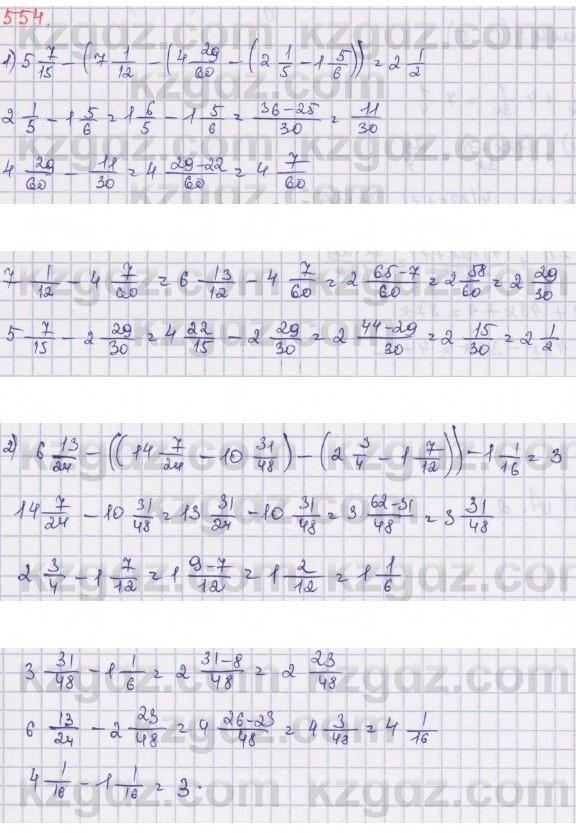 554.
1) 5 7/15 - (7 1/12 - (4 29/60 - (2 1/5 - 1 5/6))) = 2 1/2
2 1/5 - 1 5/6 = 1 6/5 - 1 5/6 = 36-25/30 = 11/30
4 29/60 - 11/30 = 4 29-22/60 = 4 7/60
7 1/12 - 4 7/60 = 6 13/12 - 4 7/60 = 2 65-7/60 = 2 58/60 = 2 29/30
5 7/15 - 2 29/30 = 4 22/15 - 2 29/30 = 2 44-29/30 = 2 15/30 = 2 1/2
2) 6 13/24 - ((14 7/24 - 10 31/48) - (2 3/4 - 1 7/12)) - 1 1/16 = 3
14 7/24 - 10 31/48 = 13 31/24 - 10 31/48 = 3 62-31/48 = 3 31/48
2 3/4 - 1 7/12 = 1 9-7/12 = 1 2/12 = 1 1/6
3 31/48 - 1 1/6 = 2 31-8/48 = 2 23/48
6 13/24 - 2 23/48 = 4 26-23/48 = 4 3/48 = 4 1/16
4 1/16 - 1 1/16 = 3.
kzgdz.com